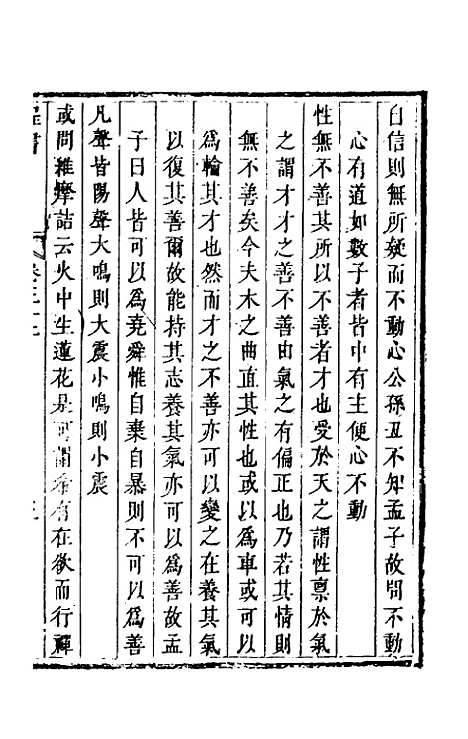 自信則無所疑而不動心公孫丑不知孟子故問不動
心有道如數子者皆中有主便心不動
性無不善其所以不善者才也受於天之謂性禀於氣
之謂才才之善不善由氣之有偏正也乃若其情則
無不善矣今夫木之曲直其性也或以爲車或可以
爲輪其才也然而才之不善亦可以變之在養其氣
以復其善爾故能持其志養其氣亦可以爲善故孟
子曰人皆可以爲堯舜惟自棄自暴則不可以爲善
凡聲皆陽聲大鳴則大震小鳴則小震
或問維摩詰云火中生蓮花是可謂希有在欲而行禪